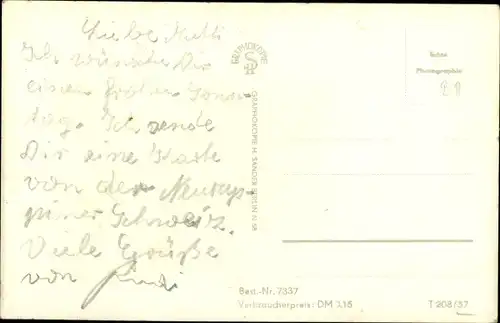 Liebe Mutti
Ich wünsche Dir
einen frohen Sonn-
tag. Ich sende
Dir eine Karte
von der Neurup-
piner Schweiz.
Viele Grüße
von Rudi
GRAPHOKOPIE
GRAPHOKOPIE H. SANDER BERLIN N 58
Echte
Photographie
Best.-Nr. 7337
Verbraucherpreis: DM 0,15
T 208/57